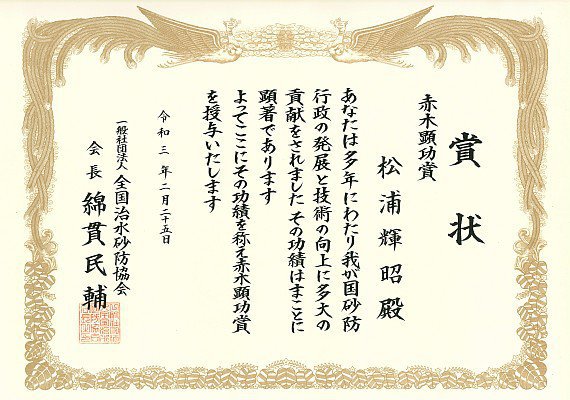 賞状
赤木顕功賞
松浦輝昭殿
あなたは多年にわたり我が国砂防
行政の発展と技術の向上に多大の
貢献をされました その功績はまことに
顕著であります
よってここにその功績を称え赤木顕功賞
を授与いたします
令和三年二月二十五日
一般社団法人 全国治水砂防協会
会長 綿貫民輔